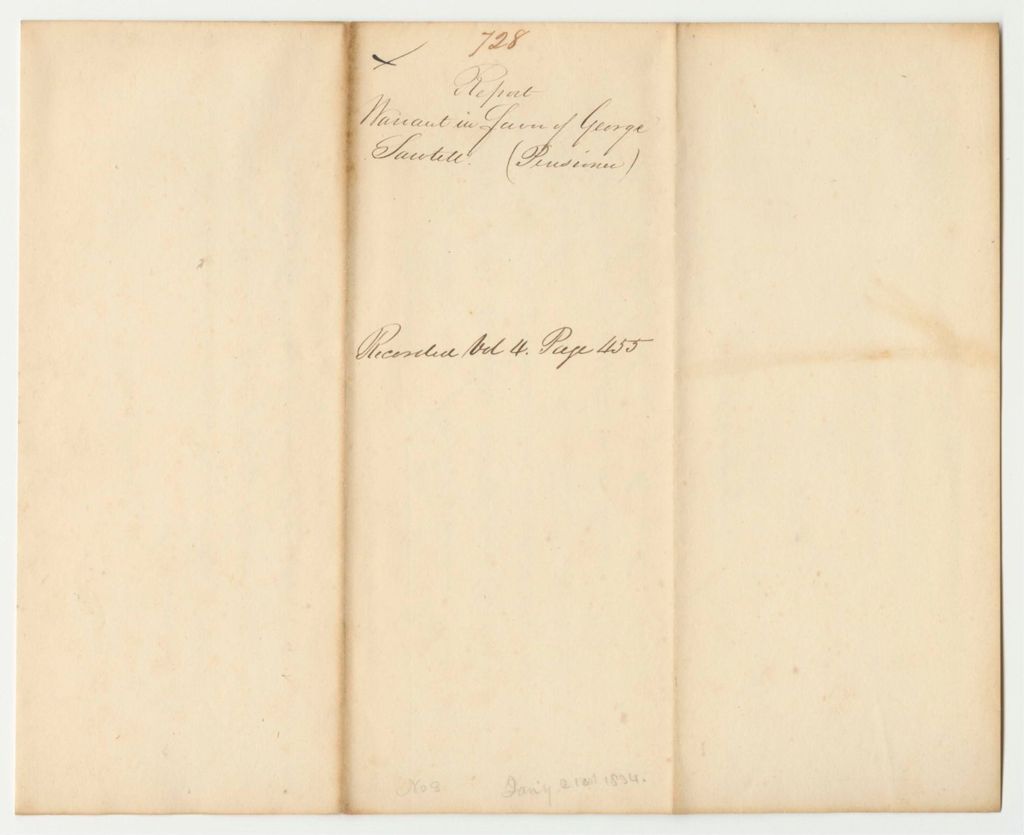 728
Report
Warrant in Favour of George
Sawtell. (Pensioner)
Recorded Vol 4. Page 455
No 3 Jan'y 21st 1834.